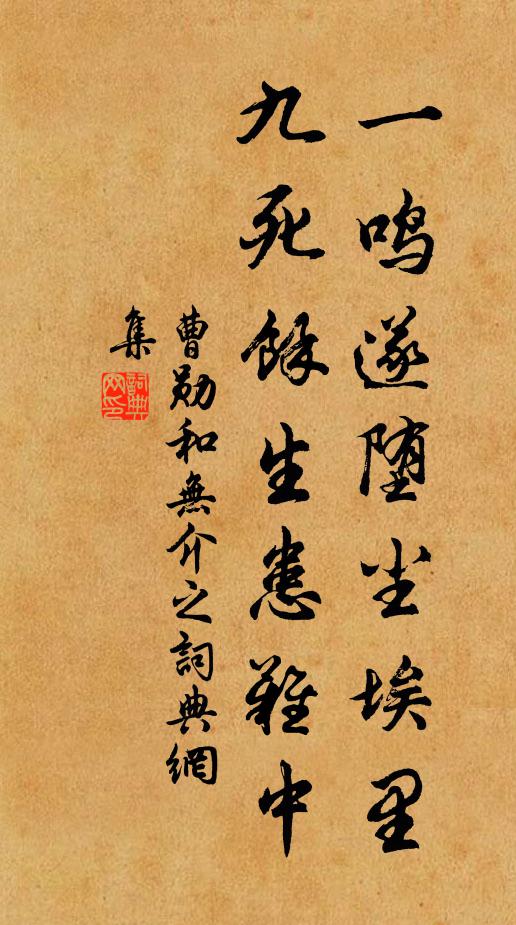 一鸣遂堕尘埃里
九死餘生患难中
曹勋和無介之詞典網
集
詞典
网印